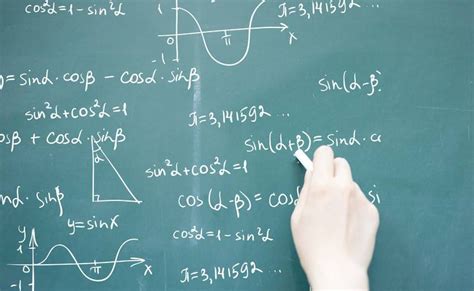 cos²α=1-sin²α
1
0
π
x
π=3,141592 ...
)=sinα·cosβ-cosα·sinβ
sin(α-β)
sin²α+cos²α=1
π=3,141592 ...
osβ+cosα·sinβ
α
sin(α+β)=sinα·c
sin²α+cos²α=1
nα·sinβ
cos(α-β)=cosα
si
y=sinx
y
1
0
π
x
-1
cos²α=1-sin²α
π=3,141592 ...